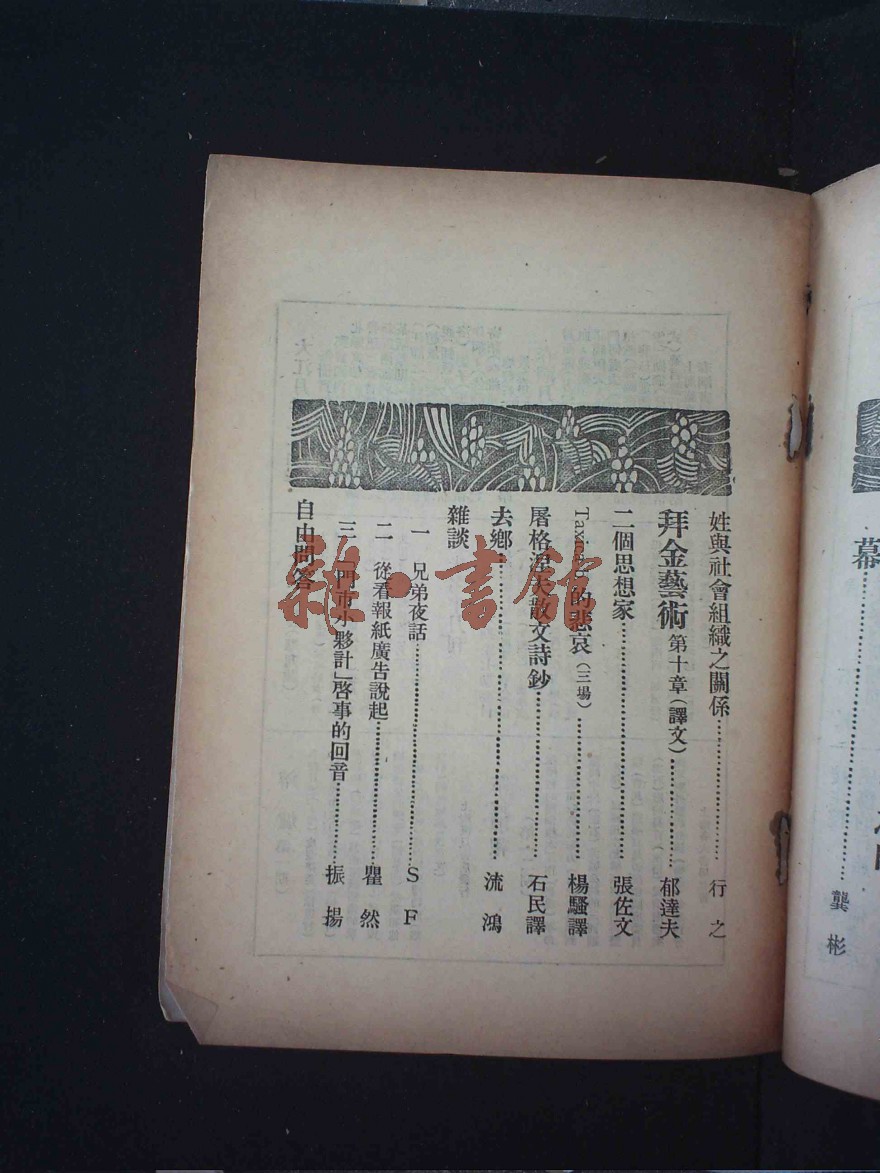 幕……………………………………龔彬
姓與社會組織之關係……………………行之
拜金藝術 第十章（譯文）………………郁達夫
二個思想家……………………………張佐文
的悲哀（三場）…………………………楊騷譯
屠格涅夫散文詩鈔………………………石民譯
去鄉……………………………………流鴻
雜談
一 兄弟夜話……………………………S F
二 從看報紙廣告說起…………………瞿然
三 「門市小夥計」啓事的回音…………振揚
自由問答
雜·書館